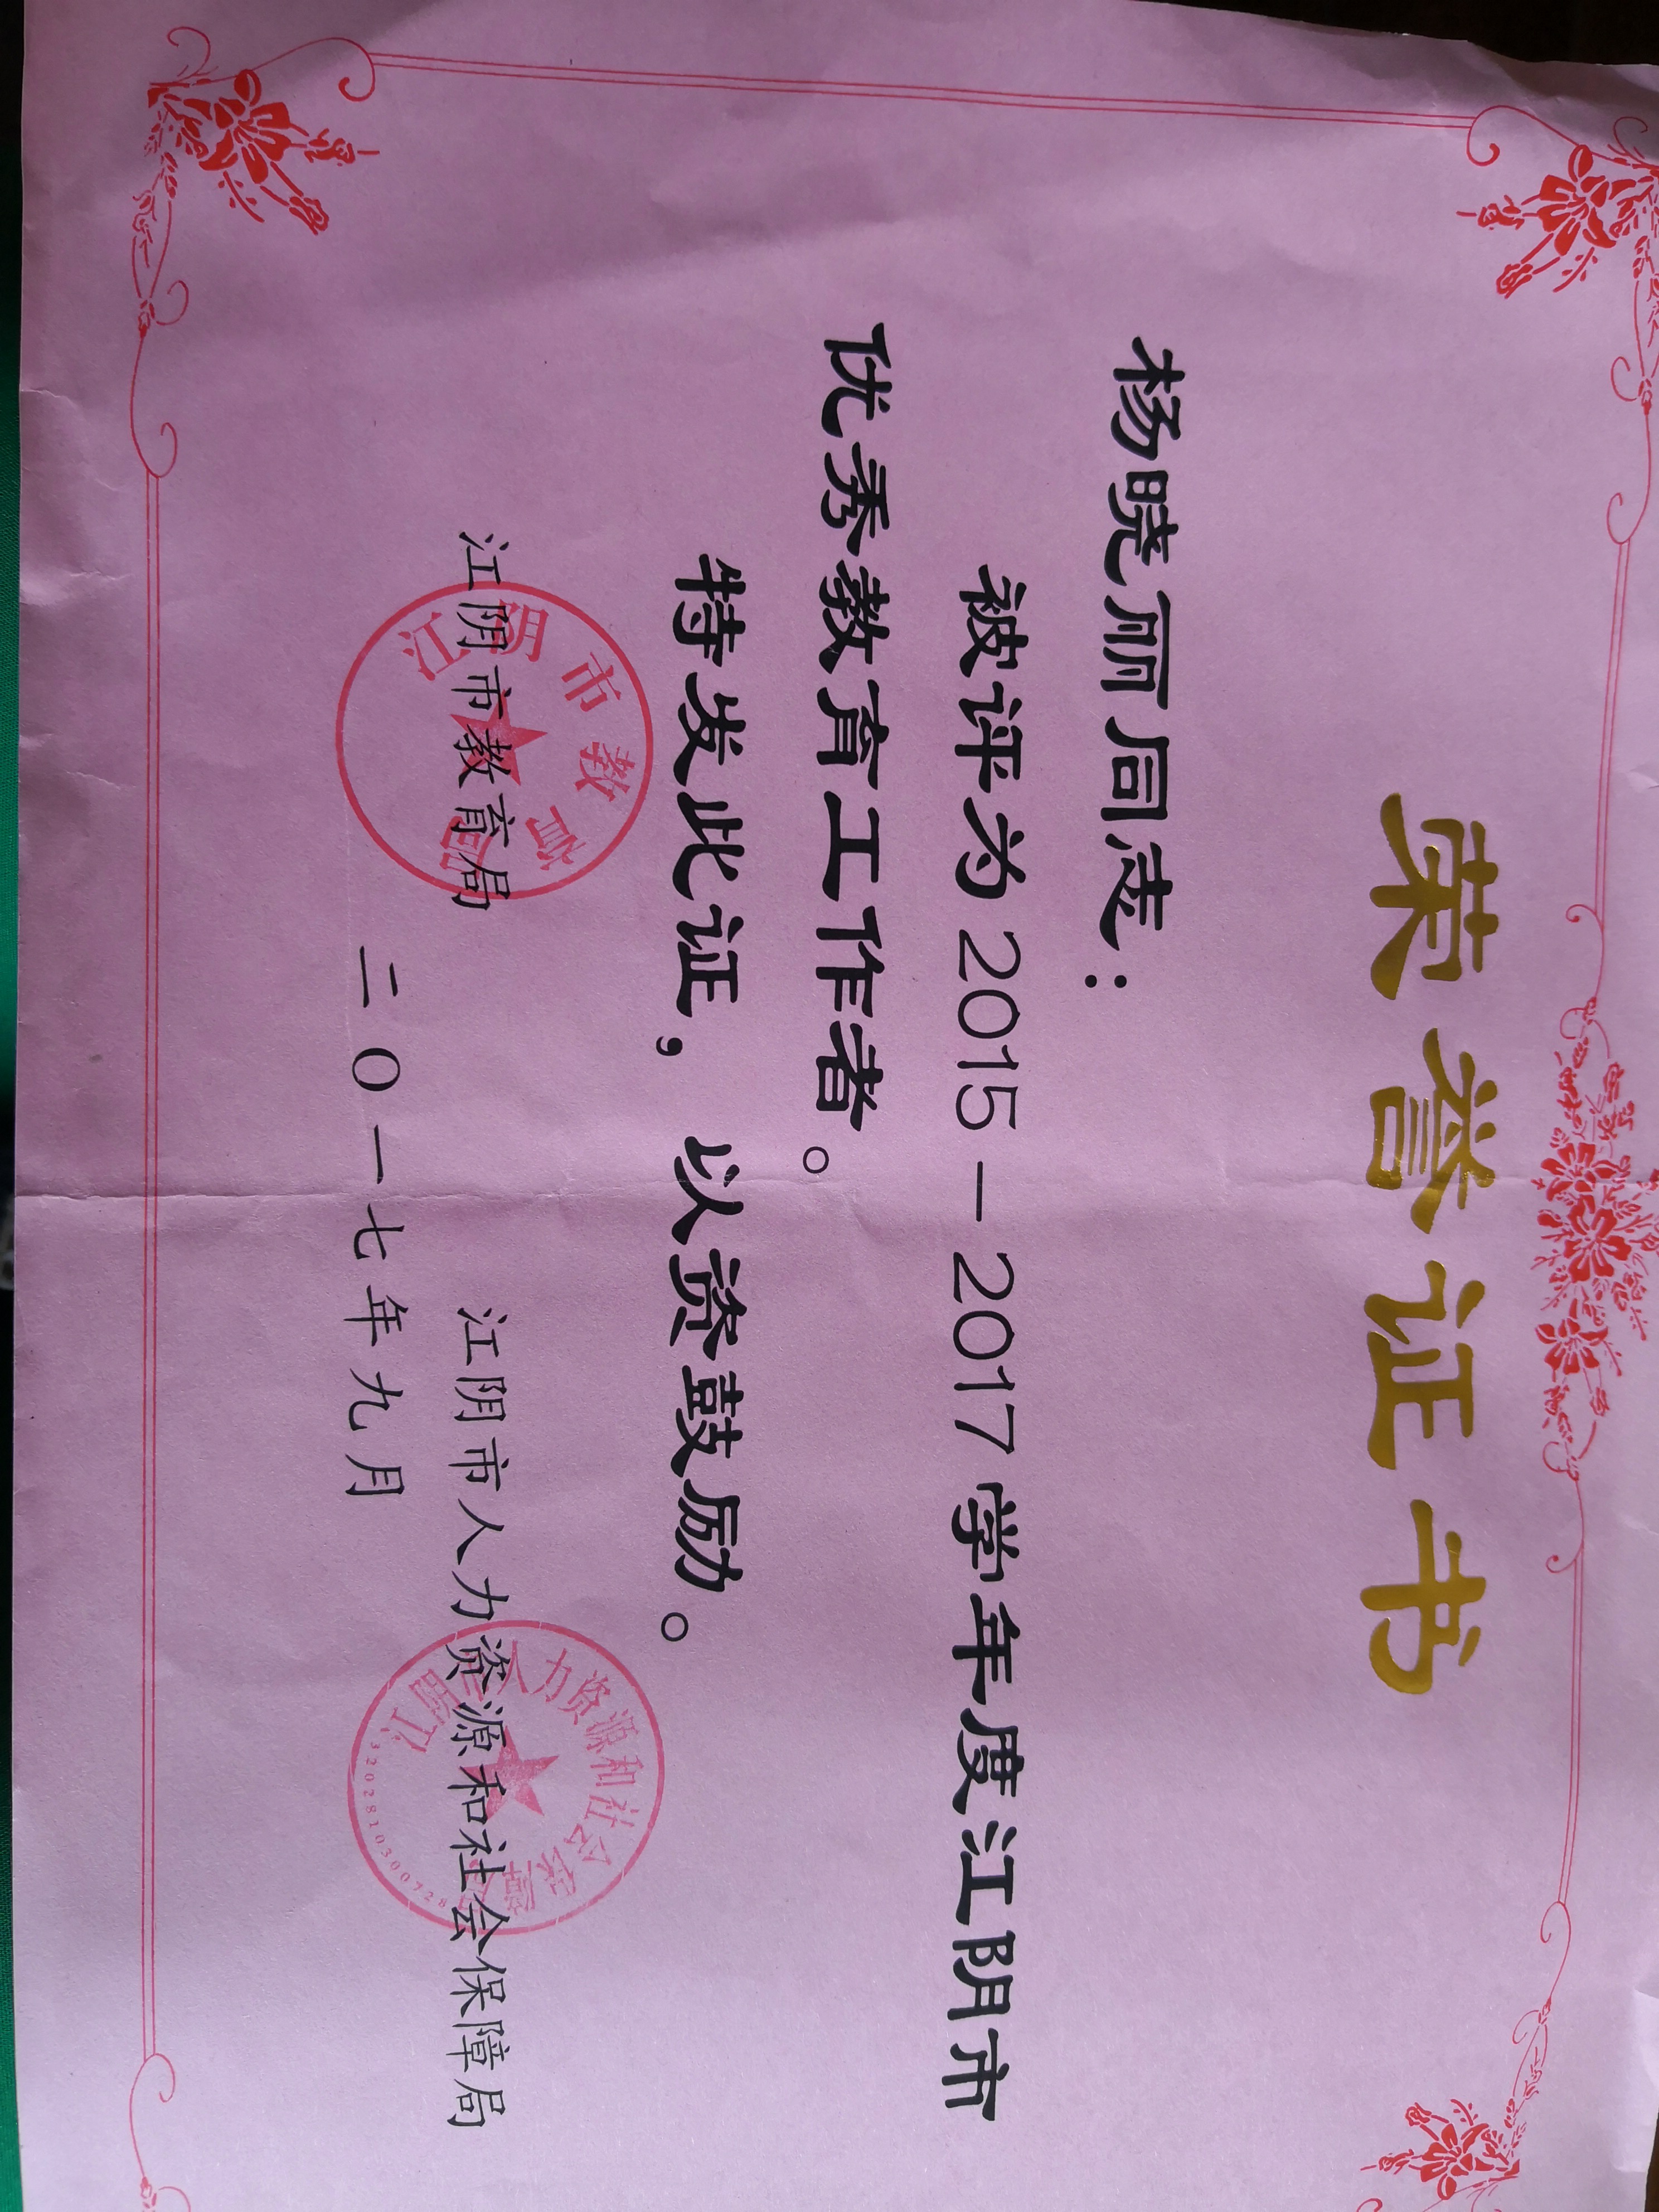 荣誉证书
杨晓丽同志：
被评为2015－2017学年度江阴市
优秀教育工作者。
特发此证，以资鼓励。
江阴市教育局 江阴市人力资源和社会保障局
二〇一七年九月
江阴市教育局
江阴市人力资源和社会保障局
3202810300728